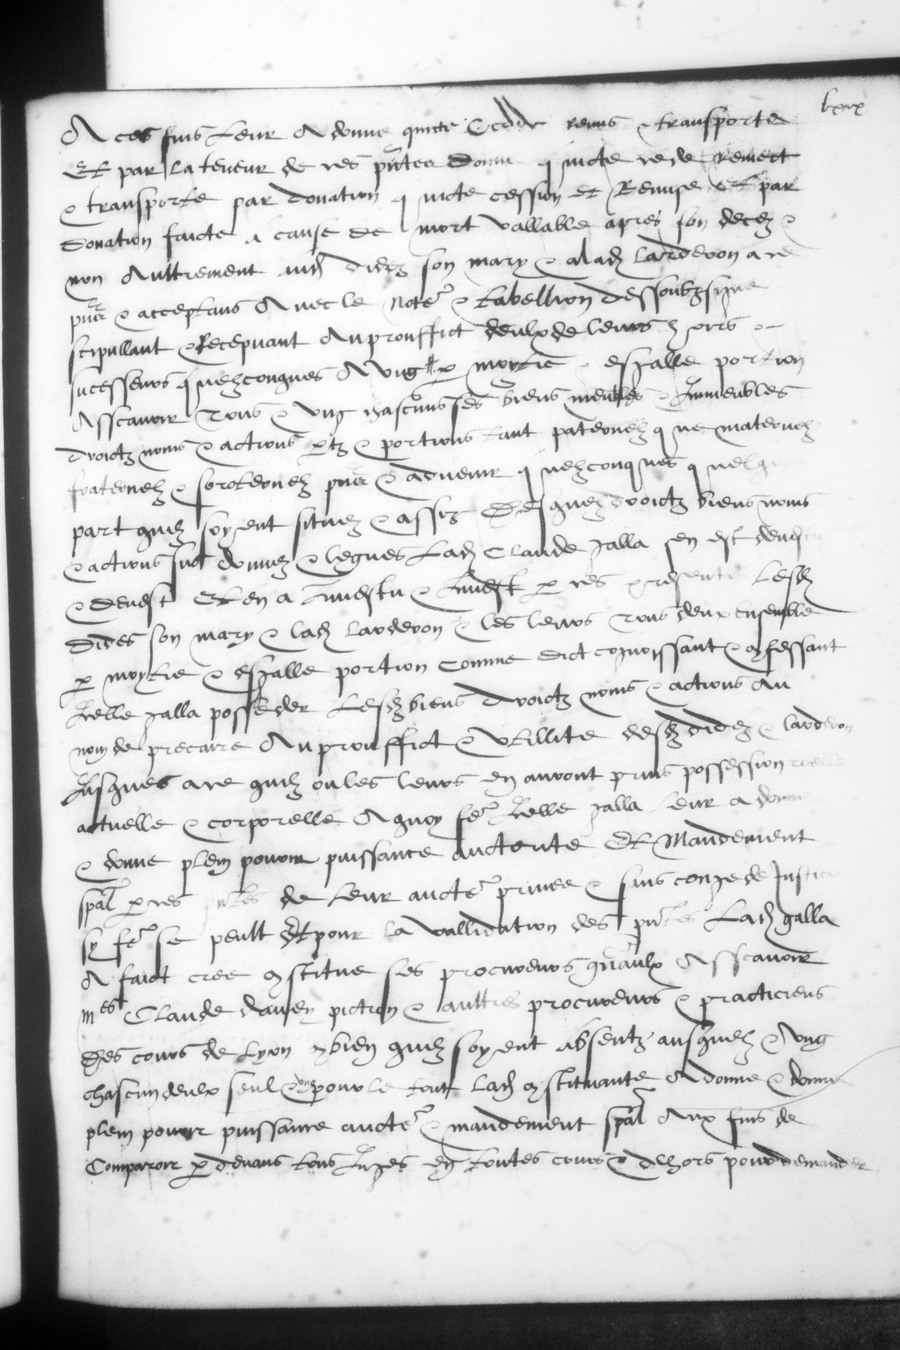 lxxx
A ces fins leur A donne quicte Ceddé remis & transporte
Et par la teneur de ces pntes donne quicte cede remect
& transporte par donation quicte cession et Remise et par
donation faicte a cause de mort vallable apres son decez &
non Aultrement aud didez son mary & alad lardevon a ce
pntz & acceptans Avecle note & tabellion dessoubzsigne
stipullant & Recepvant Auprouffict deulx de leurs hoirs &
sucessseurs quelzconques A ung p moytie & esgalle portion
Asscavoir tous & ung chascuns ses biens meubles & Immeubles
droictz noms & actions ptz & portions tant paternelz que maternelz
fraternelz & sororternelz pntz & advenir quelzconques quelque
part quilz soyent situez & assiz Desquelz droictz biens noms
& actions sud donnez & leguez Lad Claude Jalla sen est devestu
& Devest Et en a Investu & Invest p ces presentes Lesd
Didez son mary & lad lardevon & les leurs tous deux ensemble
p moytie & esgalle portion Comme dict cognoissant & confessant
Icelle Jalla posseder Lesd biens droictz noms & actions Au
nom de precaire Auprouffict & Utillite desd didez & lardevon
Jusques a ce quilz ou les leurs en auront prins possession reelle
actuelle & corporelle A quoy fe Icelle Jalla leur a donne
& donne plein pouvoir puissance auctorite Et Mandement
spal p ces pntes de leur aucte privee & sans conge de Justice
sy fe se peult Et pour la vallidation des pntes Lad Jalla
A faict cree constitue ses procureurs gnaulx Asscavoir
mes Claude davey pictron & aultres procureurs & practiciens
Des cours de Lyon combien quilz soyent absentz ausquelz & Ung
chascun deulx seul & pour le tout lad constituante A donne & donne
plein pouvoir puissance aucte & mandement spal Aux fins de
Comparoir p devans tous Juges en toutes cours & dehors pour demander